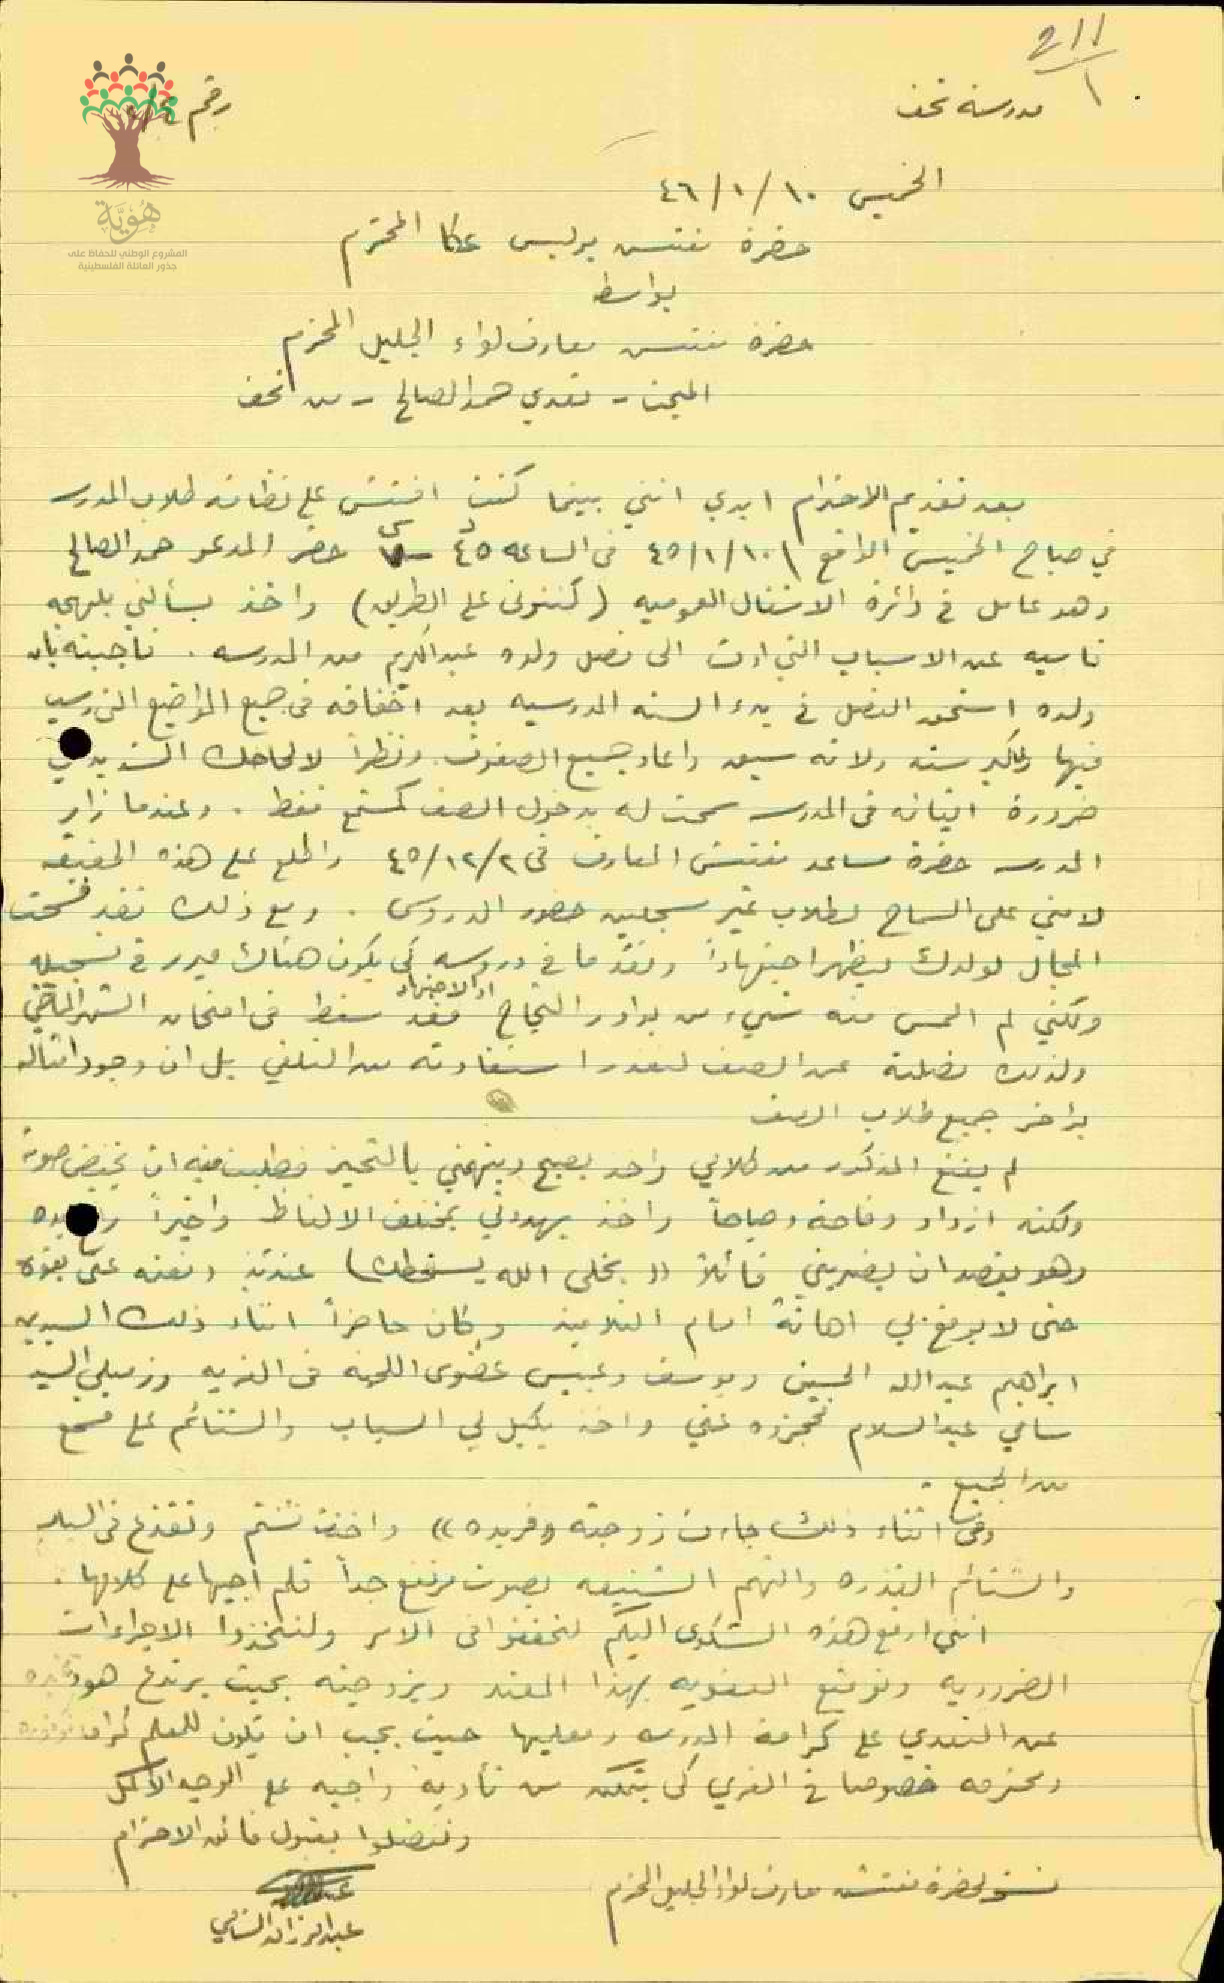 211
١
مدرسة نحف
رقم
هُوِيَّة
المشروع الوطني للحفاظ على
جذور العائلة الفلسطينية
الخميس ١٠/١/٤٦
حضرة مفتش بوليس عكا المحترم
بواسطة
حضرة مفتش معارف لواء الجليل المحترم
المبحث - تعدي حمد الصالح - من نحف
بعد تقديم الاحترام ابدي انني بينما كنت افتش على نظافة طلاب المدرسه
في صباح الخميس الواقع ٤٥/١/١٠ في الساعه ٤٥ حضر المدعو حمد الصالح
وهو عامل في دائرة الاشغال العموميه (كنتوني على الطريق) واخذ يسألني بلهجه
قاسيه عن الاسباب التي ادت الى فصل ولده عبد الكريم من المدرسه . فأجبته بان
ولده استحق الفصل في بدء السنه المدرسيه بعد اخفاقه في جميع المواضيع التي رسب
فيها ولكبر سنه ولانه سبق واعاد جميع الصفوف. ونظراً لالحاحك الشديد في
ضرورة اتيانه في المدرسه سمحت له بدخول الصف كمستمع فقط . وعندما زار
المدرسه حضرة مساعد مفتش المعارف في ٤٥/١٢/٢ واطلع على هذه الحقيقه
لامني على السماح لطلاب غير مسجلين حضور الدروس . ومع ذلك فقد فسحت
المجال لولدك ليظهر اجتهاداً وتقدما في دروسه كي يكون هناك مبرر في تسجيله
ولكني لم المس منه شيء من بوادر النجاح او الاجتهاد فقد سقط في امتحان الشهر الماضي
ولذلك فصلته عن الصف لتعذر استفادته من التلقي بل ان وجود امثاله
يؤخر جميع طلاب الصف
لم يقتنع المذكور من كلامي واخذ يصيح ويتهمني بالتحيز فطلبت منه ان يخفض صوته
ولكنه ازداد وقاحة وصياحاً واخذ يهددني بمختلف الالفاظ واخيراً رفع يده
وهو يقصد ان يضربني قائلاً (( بخلي الله يسخطك) عندئذ دفعته عني بقوة
حتى لا يوقع بي اهانةً امام التلاميذ وكان حاضراً اثناء ذلك السيدين
ابراهيم عبد الله الحسين ويوسف وعبيس عضوى اللجنه في القريه وزميلي السيد
سامي عبد السلام فحجزوه عني واخذ يكيل لي السباب والشتائم على مسمع
من الجميع .
وفي اثناء ذلك جاءت زوجته «فريده» واخذت تشتم وتقذع في السباب
والشتائم القذره والتهم الشنيعه بصوت مرتفع جداً فلم اجيبها على كلامها .
انني ارفع هذه الشكوى اليكم لتحققوا في الامر ولتتخذوا الاجراءات
الضروريه وتوقيع العقوبه بهذا المعتد وبزوجته بحيث يرتدع هو وغيره
عن التعدي على كرامة المدرسه ومعليها حيث يجب ان تكون للمعلم كرامه موفوره
ومحترمه خصوصا في القرى كي يتمكن من تأدية واجبه على الوجه الاكمل
وتفضلوا بقبول فائق الاحترام
نسخه لحضرة مفتش معارف لواء الجليل المحترم
عبد الرزاق الشامي